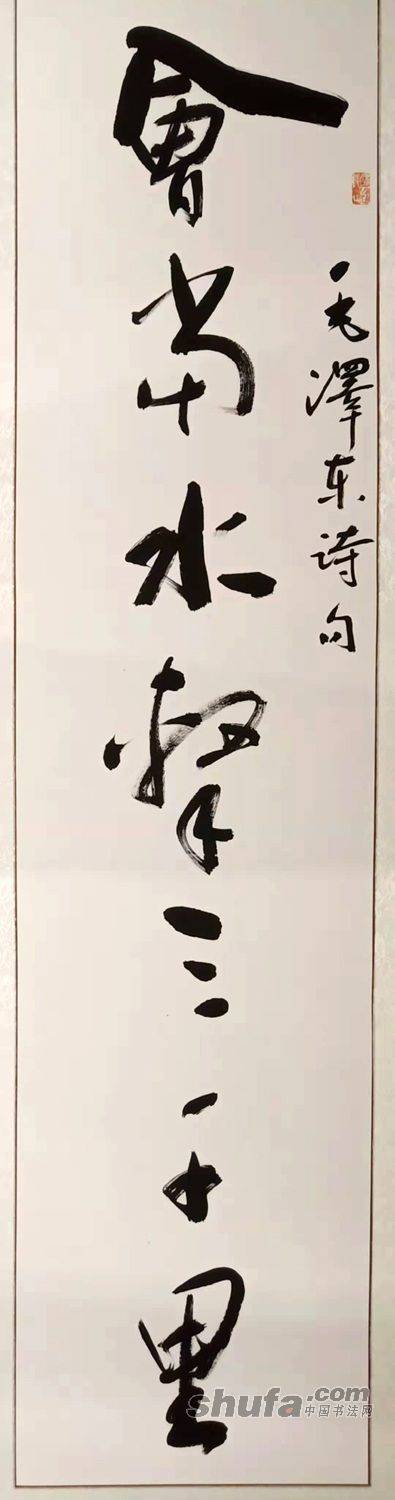 毛澤东诗句
會當水擊三千里
shufa.com
中国书法网